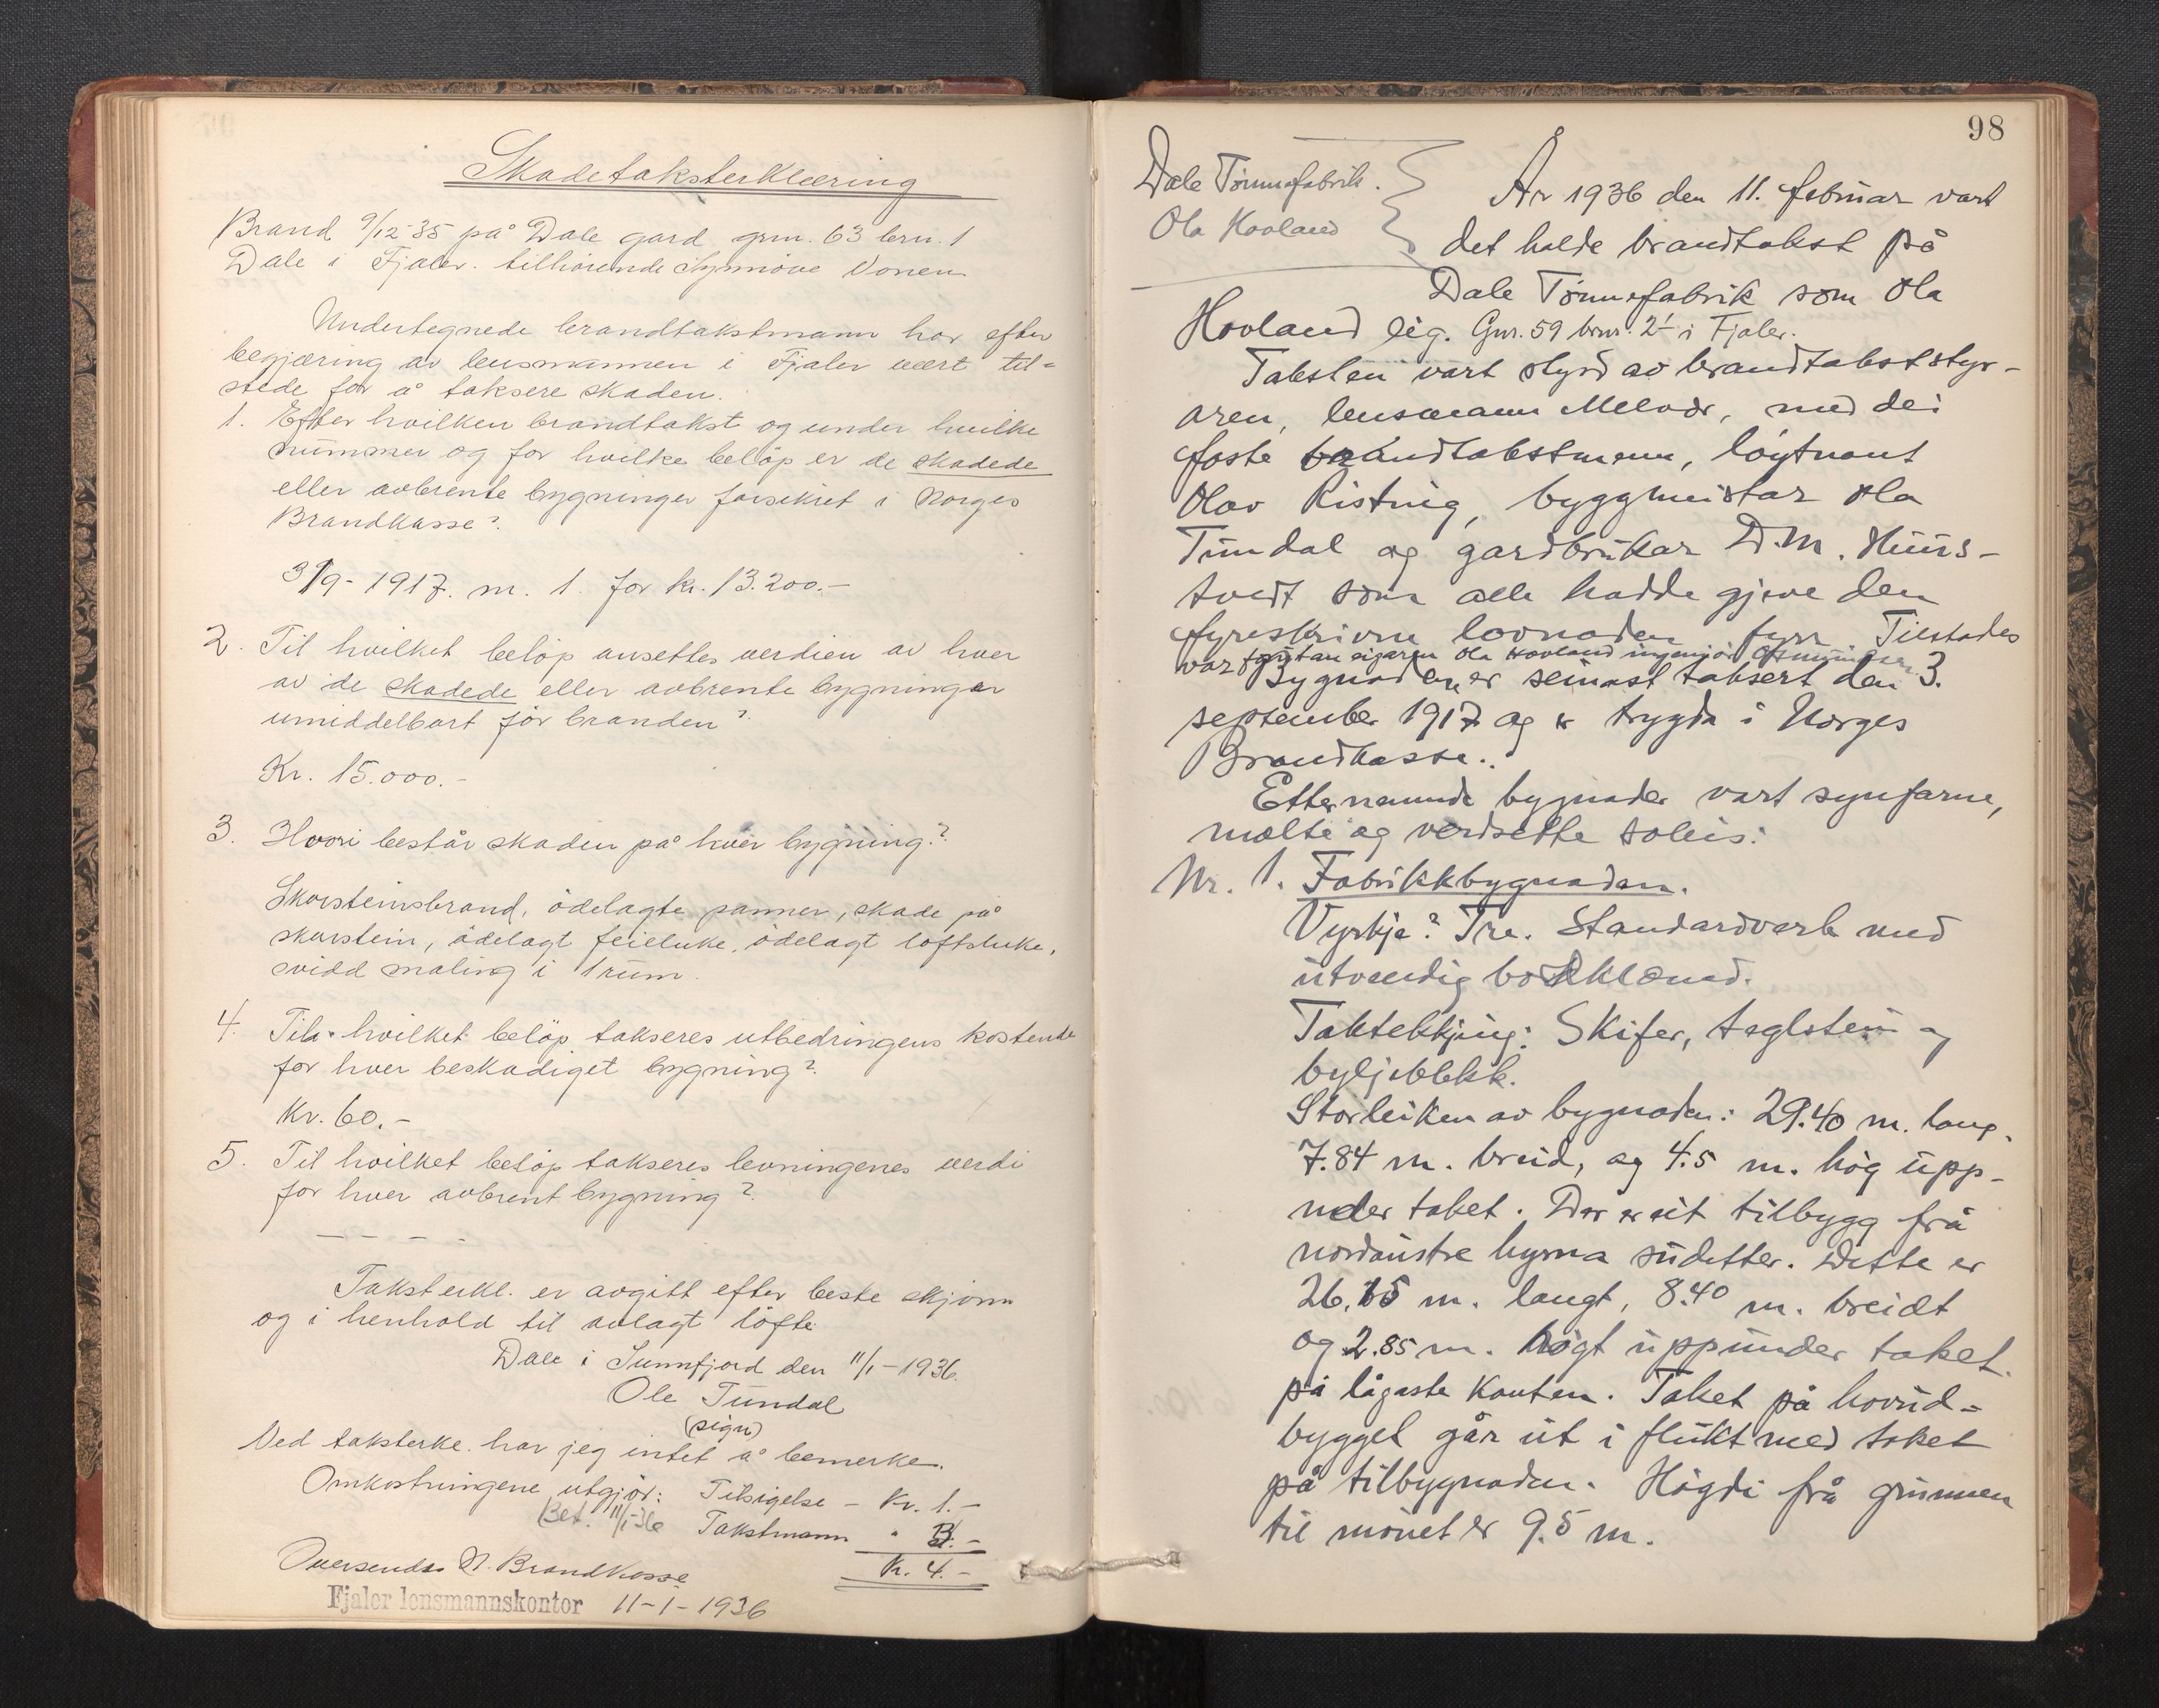 Skadetaksterklæring
Brand 9/12-35 på Dale gard grn. 63 brn. 1
Dale i Fjaler. tilhörende Synnöve Vonen.
Undertegnede brandtakstmann har efter
begjæring av lensmannen i Fjaler vært til=
stede for å taksere skaden.
1. Efter hvilken brandtakst og under hvilke
nummer og for hvilke belöp er de skadede
eller avbrente bygninger forsikret i Norges
Brandkasse?
3/9-1917. nr. 1. for kr. 13.200.-
2. Til hvilket belöp ansettes verdien av hver
av de skadede eller avbrente bygninger
umiddelbart för branden?
Kr. 15.000.-
3. Hvori består skaden på hver bygning?
Skorsteinsbrand, ödelagte panner, skade på
skorstein, ödelagt feieluke, ödelagt loftsluke,
svidd maling i 1 rum.
4. Til hvilket belöp takseres utbedringens kostende
for hver beskadiget bygning?
Kr. 60.-
5. Til hvilket belöp takseres levningenes verdi
for hver avbrent bygning?
- - - -
Taksterkl. er avgitt efter beste skjönn
og i henhold til avlagt löfte
Dale i Sunnfjord den 11/1-1936.
Ole Tundal
(sign)
Ved taksterkl. har jeg intet å bemerke.
Omkostningene utgjör: Tilsigelse - Kr. 1.-
Bet. 11/1-36 Takstmann " 3.-
Kr. 4.-
Oversendes N. Brandkasse
Fjaler lensmannskontor 11-1-1936
98
Dale Tönnefabrik.
Ola Hovland
År 1936 den 11. februar vart
det halde brandtakst på
Dale Tönnefabrik som Ola
Hovland eig. Gnr. 59 brnr. 21 i Fjaler.
Taksten vart styrd av brandtakststyr-
aren, lensmann Melvær, med dei
faste brandtakstmenn, löytnant
Olav Risting, byggmeistar Ola
Tundal og gardbrukar D.M. Huus-
tvedt som alle hadde gjeve den
fyreskrivne lovnaden fyrr. Tilstades
var forutan eigaren Ola Hovland ingeniör
Bygnaden er seinast taksert den 3.
september 1917 og er trygda i Norges
Brandkasse..
Etternemnde bygnader vart synfarne,
mælte og verdsette soleis:
Nr. 1. Fabrikkbygnaden.
Vyrkje? Tre. Standardverk med
utvendig bordklædnad.
Taktekkjing: Skifer, teglstein og
bylgjeblekk.
Storleiken av bygnaden: 29.40 m. lang,
7.84 m. breid, og 4.5 m. hög upp-
under taket. Der er eit tilbygg frå
nordaustre hyrna sudetter. Dette er
26.15 m. langt, 8.40 m. breidt
og 2.85 m. högt uppunder taket
på lågaste kanten. Taket på hovud-
bygget går ut i flukt med taket
på tilbygnaden. Högdi frå grunnen
til mönet er 9.5 m.